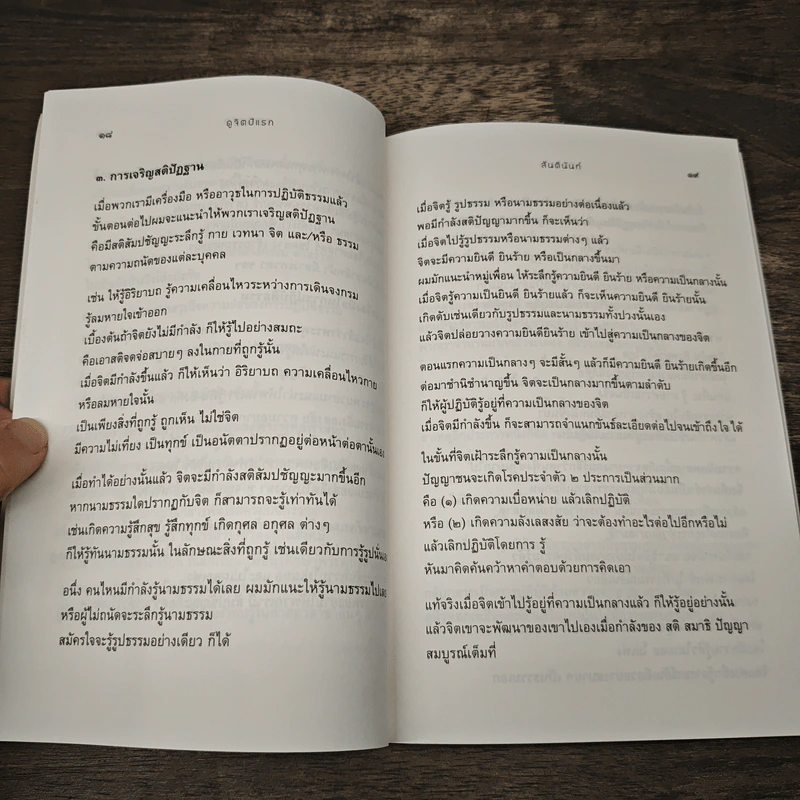 ๑๘
ดูจิตปีแรก
๓. การเจริญสติปัฏฐาน
เมื่อพวกเรามีเครื่องมือ หรืออาวุธในการปฏิบัติธรรมแล้ว
ขั้นตอนต่อไปผมจะแนะนำให้พวกเราเจริญสติปัฏฐาน
คือมีสติสัมปชัญญะระลึกรู้ กาย เวทนา จิต และ/หรือ ธรรม
ตามความถนัดของแต่ละบุคคล
เช่น ให้รู้อิริยาบถ รู้ความเคลื่อนไหวระหว่างการเดินจงกรม
รู้ลมหายใจเข้าออก
เบื้องต้นถ้าจิตยังไม่มีกำลัง ก็ให้รู้ไปอย่างสมถะ
คือเอาสติจดจ่อสบายๆ ลงในกายที่ถูกรู้นั้น
เมื่อจิตมีกำลังขึ้นแล้ว ก็ให้เห็นว่า อิริยาบถ ความเคลื่อนไหวกาย
หรือลมหายใจนั้น
เป็นเพียงสิ่งที่ถูกรู้ ถูกเห็น ไม่ใช่จิต
มีความไม่เที่ยง เป็นทุกข์ เป็นอนัตตาปรากฏอยู่ต่อหน้าต่อตานั้นเอง
เมื่อทำได้อย่างนั้นแล้ว จิตจะมีกำลังสติสัมปชัญญะมากขึ้นอีก
หากนามธรรมใดปรากฏกับจิต ก็สามารถจะรู้เท่าทันได้
เช่นเกิดความรู้สึกสุข รู้สึกทุกข์ เกิดกุศล อกุศล ต่างๆ
ก็ให้รู้ทันนามธรรมนั้น ในลักษณะสิ่งที่ถูกรู้ เช่นเดียวกับการรู้รูปนั่นเอง
อนึ่ง คนไหนมีกำลังรู้นามธรรมได้เลย ผมมักแนะให้รู้นามธรรมไปเลย
หรือผู้ไม่ถนัดจะระลึกรู้นามธรรม
สมัครใจจะรู้รูปธรรมอย่างเดียว ก็ได้
สันตินันท์
๑๙
เมื่อจิตรู้ รูปธรรม หรือนามธรรมอย่างต่อเนื่องแล้ว
พอมีกำลังสติปัญญามากขึ้น ก็จะเห็นว่า
เมื่อจิตไปรู้รูปธรรมหรือนามธรรมต่างๆ แล้ว
จิตจะมีความยินดี ยินร้าย หรือเป็นกลางขึ้นมา
ผมมักแนะนำหมู่เพื่อน ให้ระลึกรู้ความยินดี ยินร้าย หรือความเป็นกลางนั้น
เมื่อจิตรู้ความเป็นยินดี ยินร้ายแล้ว ก็จะเห็นความยินดี ยินร้ายนั้น
เกิดดับเช่นเดียวกับรูปธรรมและนามธรรมทั้งปวงนั้นเอง
แล้วจิตปล่อยวางความยินดียินร้าย เข้าไปสู่ความเป็นกลางของจิต
ตอนแรกความเป็นกลางๆ จะมีสั้นๆ แล้วก็มีความยินดี ยินร้ายเกิดขึ้นอีก
ต่อมาชำนิชำนาญขึ้น จิตจะเป็นกลางมากขึ้นตามลำดับ
ก็ให้ผู้ปฏิบัติรู้อยู่ที่ความเป็นกลางของจิต
เมื่อจิตมีกำลังขึ้น ก็จะสามารถจำแนกขันธ์ละเอียดต่อไปจนเข้าถึงใจ ได้
ในขั้นที่จิตเฝ้าระลึกรู้ความเป็นกลางนั้น
ปัญญาชนจะเกิดโรคประจำตัว ๒ ประการเป็นส่วนมาก
คือ (๑) เกิดความเบื่อหน่าย แล้วเลิกปฏิบัติ
หรือ (๒) เกิดความลังเลสงสัย ว่าจะต้องทำอะไรต่อไปอีกหรือไม่
แล้วเลิกปฏิบัติโดยการ รู้
หันมาคิดค้นคว้าหาคำตอบด้วยการคิดเอา
แท้จริงเมื่อจิตเข้าไปรู้อยู่ที่ความเป็นกลางแล้ว ก็ให้รู้อยู่อย่างนั้น
แล้วจิตเขาจะพัฒนาของเขาไปเองเมื่อกำลังของ สติ สมาธิ ปัญญา
สมบูรณ์เต็มที่